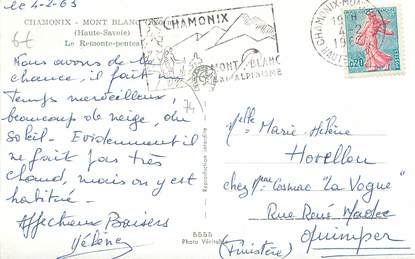 le 4-2-63
CHAMONIX - MONT BLANC
(Haute-Savoie)
Le Remonte-pentes
6f
CHAMONIX
MONT-BLANC
ALPINISME
CHAMONIX-MO
18H
4-2
19
HAUTE
0,20
74
Nous avons de la
chance, il fait un
temps merveilleux,
beaucoup de neige, du
soleil. Evidemment il
ne fait pas très
chaud, mais on y est
habitué.
Affectueux Baisers
Hélène
Reproduction interdite
5555
Photo Véritable
Melle Marie-Hélène
Hovellou
chez Mme Cosmao "La Vogue"
Rue René Madec
Quimper
(Finistère)